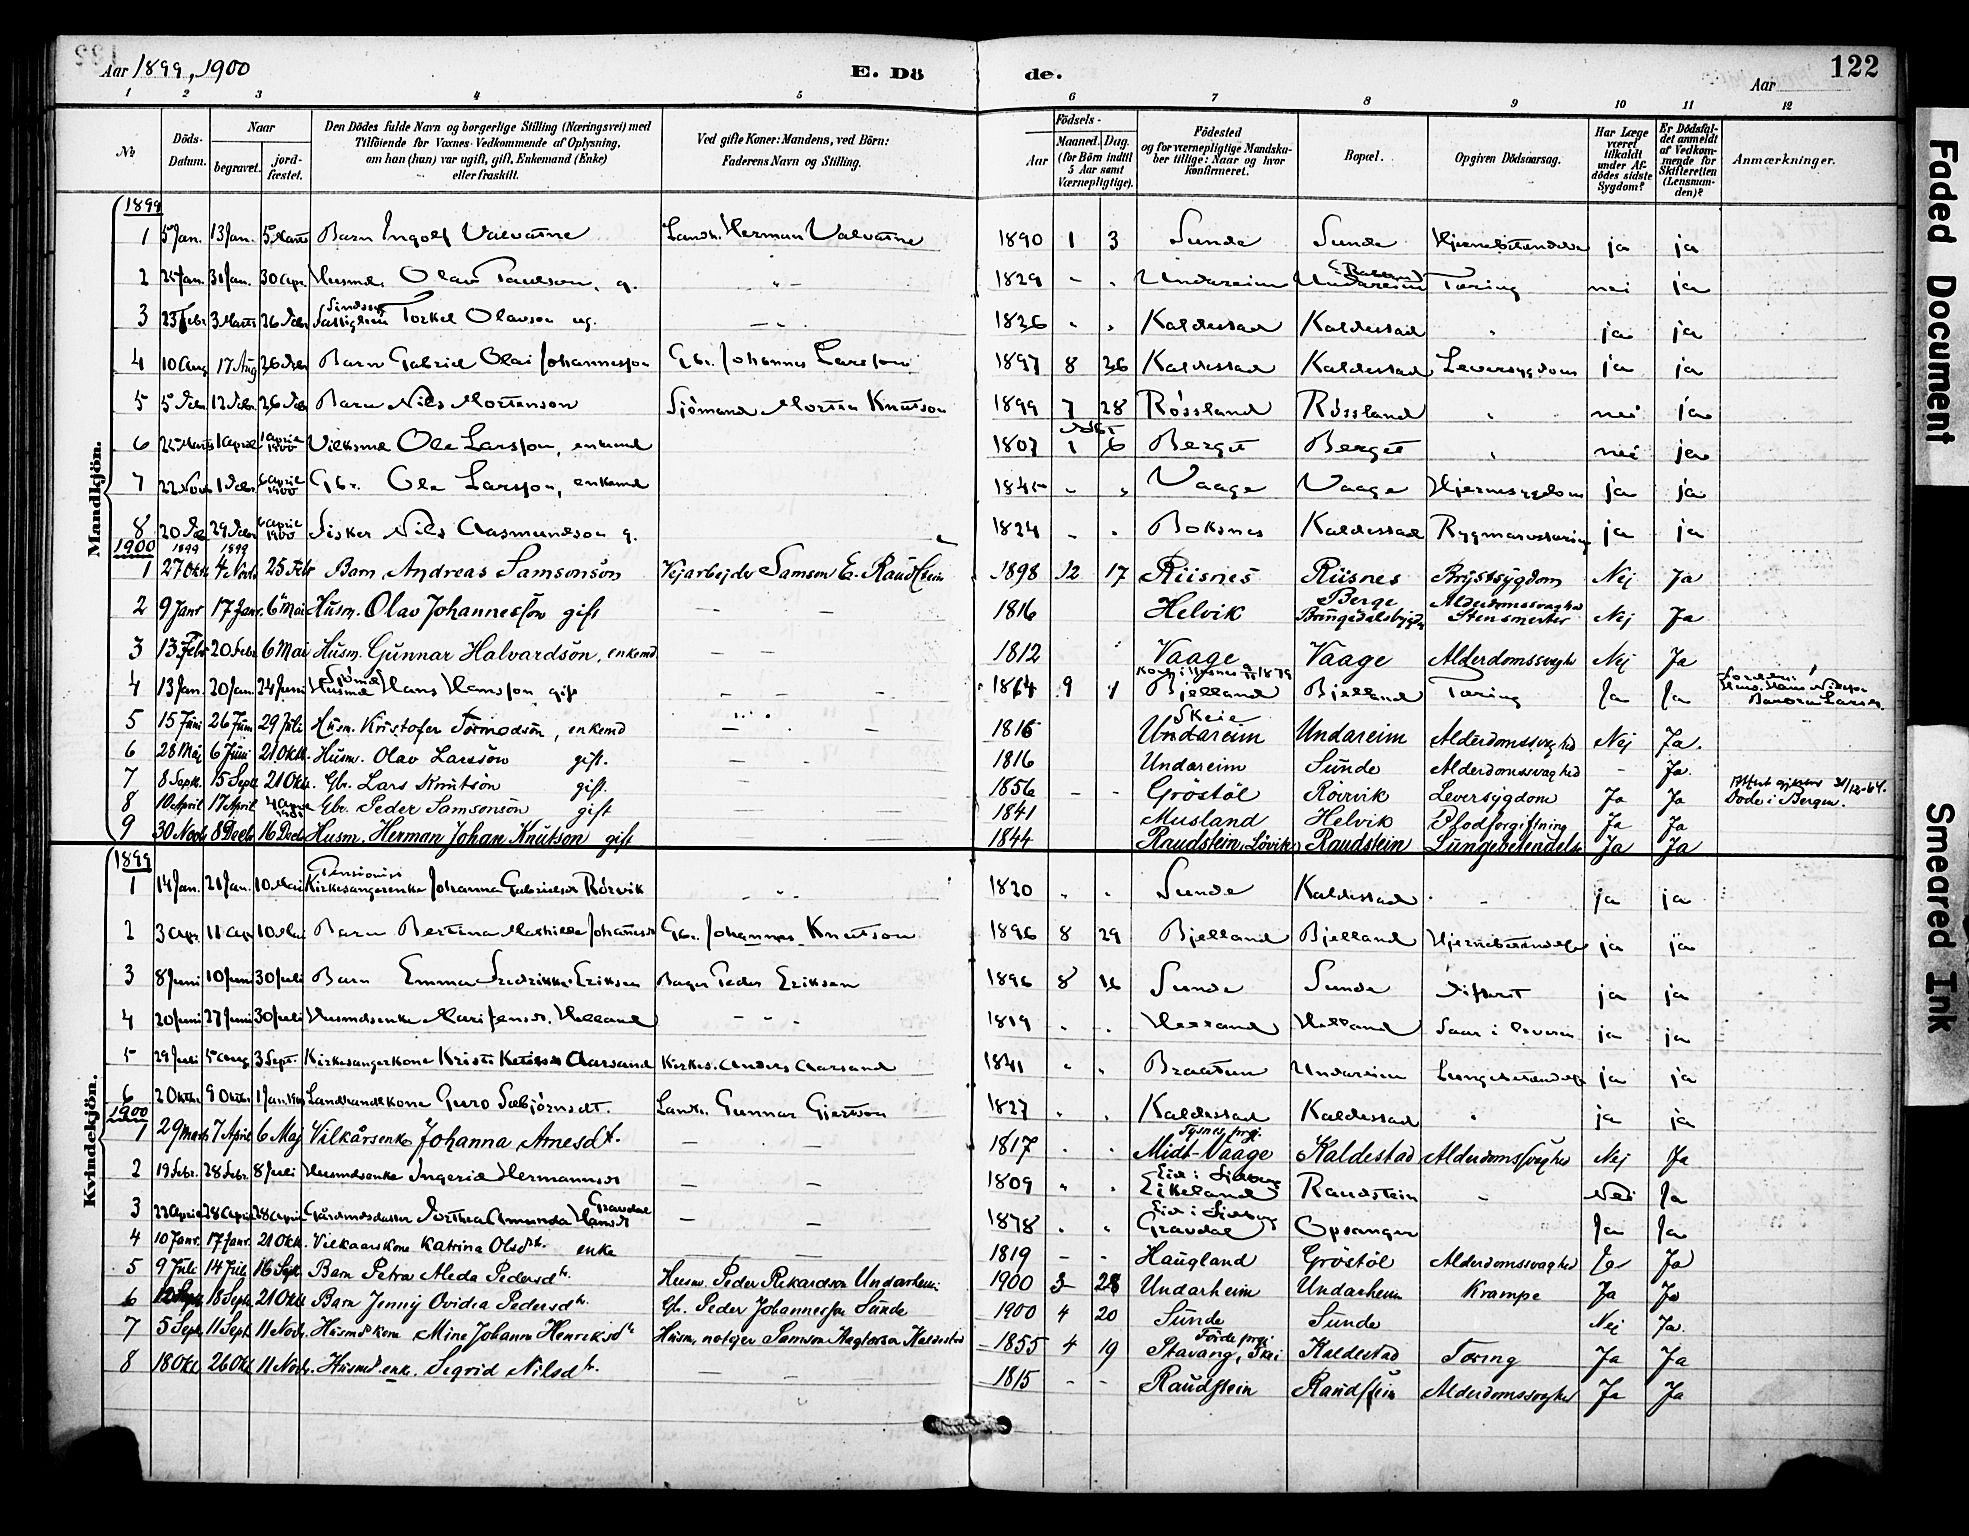 Aar 1899, 1900 E. Dö de. Aar 122
1 2 3 4 5 6 7 8 9 10 11 12
№ Döds-Datum. Naar begravet. jord-fæstet. Den Dödes fulde Navn og borgerlige Stilling (Næringsvei) med Tilföiende for Voxnes Vedkommende af Oplysning, om han (hun) var ugift, gift, Enkemand (Enke) eller fraskilt. Ved gifte Koner: Mandens, ved Börn: Faderens Navn og Stilling. Födsels- Aar Maaned. Dag. (for Börn indtil 5 Aar samt Værnepligtige). Födested og for værnepligtige Mandska-ber tillige: Naar og hvor konfirmeret. Bopæl. Opgiven Dödsaarsag. Har Læge været tilkaldt under Af-dödes sidste Sygdom? Er Dödsfal-det anmeldt af Vedkom-mende for Skifteretten (Lensman-den)? Anmærkninger.
Mandkjön.
1899
1 5 Jan. 13 Jan. 5 Marts Barn Ingolf Valvatne Landh. Herman Valvatne 1890 1 3 Sunde Sunde ja ja
2 31 Jan. 30 Apr. Husmd. Olav Paulson, g. 1829 Undareim Undareim Tæring nei ja
3 23 Febr 3 Marts Torkel Olavson ug. 1826 Kaldestad Kaldestad ja ja
4 10 Aug 17 Aug Barn Gabriel Olai Johannesson Gbr. Johannes Larsson 1897 8 26 Kaldestad Kaldestad Leversygdom ja ja
5 Barn Nils Mortenson Sjömand Morten Knutson 1899 7 28 Røssland Røssland nei ja
6 1 April 1 April 1900 Ole Larsson, enkemd 1807 1 6 Berget Berget nei ja
7 6 April 1900 Gbr. Ole Larsson, enkemd Vaage Vaage Hjernesygdom ja ja
8 6 April 1900 Fisker Nils Aasmundson g. 1824 Boksnes Kaldestad Rygmarvstæring ja ja
1900
1 27 Okt. 1899 4 Novb. 1899 25 Febr Barn Andreas Samsonson Vejarbejder Samson E. Raudstein 1898 12 17 Riisnes Riisnes Brystsygdom Nej Ja
2 9 Janr 17 Janr. 6 Mai Husm. Olav Johannesson gift 1816 Helvik Berge Bringedalsbygden Alderdomssvaghed Stensmerter Nej Ja
3 13 Febr 20 Febr 6 Mai Husm. Gunnar Halvardson, enkemd 1812 Vaage Vaage Alderdomssvaghd Nej Ja
4 13 Jan. 20 Jan. 24 Juni Sjömd Husmd Hans Hansson gift 1864 9 1 Bjelland Bjelland Tæring Ja Ja
5 15 Juni 26 Juni 29 Juli Husm. Kristofer Tormodson, enkemd 1816 Skeie Undareim Undareim Alderdomssvaghed Nej Ja.
6 28 Maj 6 Juni 21 Okt. Husm. Olav Larsson gift. 1816 Undareim Sunde Alderdomssvaghed - Ja.
7 8 Septb. 15 Septb. 21 Okt. Gbr. Lars Knutson gift. 1856 Gröstöl Rörvik Leversygdom Ja Ja Döde i Bergen.
8 10 April 17 April Gbr. Peder Samsonson gift 1841 Musland Helvik Blodforgiftning Ja Ja
9 30 Novb 8 Decb. 16 Decb. Husm. Herman Johan Knutson gift 1844 Raudstein, Lövik Raudstein Lungebetændelse Ja Ja
Kvindekjön.
1899
1 14 Jan. 21 Jan. 10 Mai Kirkesangerenke Johanna Gabrielsd. Rörvik 1820 Sunde Kaldestad ja ja
2 3 Apr. 11 Apr 10 Mai Barn Bertina Mathilde Johannesd Gbr. Johannes Knutson 1896 8 29 Bjelland Bjelland Hjernebetændelse ja ja
3 8 Juni 10 Juni 30 Juli Barn Emma Fredrikke Eriksen Bager Peder Eriksen 1896 8 16 Sunde Sunde Difterit ja ja
4 20 Juni 27 Juni 30 Juli Husmdsenke Mari Jensd. Helland 1819 Helland Helland Saar i Leveren ja ja
5 29 Juli 5 Aug 3 Sept. Kirkesangerkone Kristi Aarsand Kirkes. Anders Aarsand 1841 Braatun Undareim Lungebetændelse ja ja
6 2 Oktbr. 9 Oktbr. Landhandlkone Guro Sæbjörnsdt. Landh. Gunnar Gjertson 1827 Kaldestad Kaldestad ja ja
1900
1 29 Marts 7 April 6 Maj Vilkårsenke Johanna Arnesdt. 1817 Tysnes prgj. Midt-Vaage Kaldestad Alderdomssvaghed Nej Ja
2 19 Febr. 28 Febr. 8 Juli Husmdsenke Ingerid Hermannsd 1809 Eikeland Raudstein Nei Ja
3 22 April 28 April 28 April Gårdmdsdatter Dorthea Amunda Hansdt Gravdal 1878 Gravdal Opsanger Ja Ja
4 10 Janr. 17 Janr. 21 Okt. Vilkaarskone Katrina Olsdt. enke 1819 Haugland Gröstöl Alderdomssvaghed Ja Ja
5 9 Juli 14 Juli 16 Sept. Barn Petra Aleda Pedersdtr. Husm. Peder Rikardson Undarheim 1900 3 28 Undarheim Undarheim Krampe Ja Ja
6 18 Septb. 21 Okt Barn Jenny Ovidea Pedersdtr. Gb. Peder Johannesson Sunde 1900 4 20 Sunde Sunde Nej Ja.
7 5 Sept 11 Sept. 11 Novb. Husmdskone Mine Johanna Henriksdtr Husm. Samson Kaldestad 1855 4 19 Förde prgj. Stavang, Kaldestad Tæring Ja Ja
8 18 Okt. 26 Okt 11 Novb. Husmdsenke. Sigrid Nilsdtr. 1815 Raudstein Raudstein Alderdomssvaghed Ja Ja
Faded Document
Smeared Ink